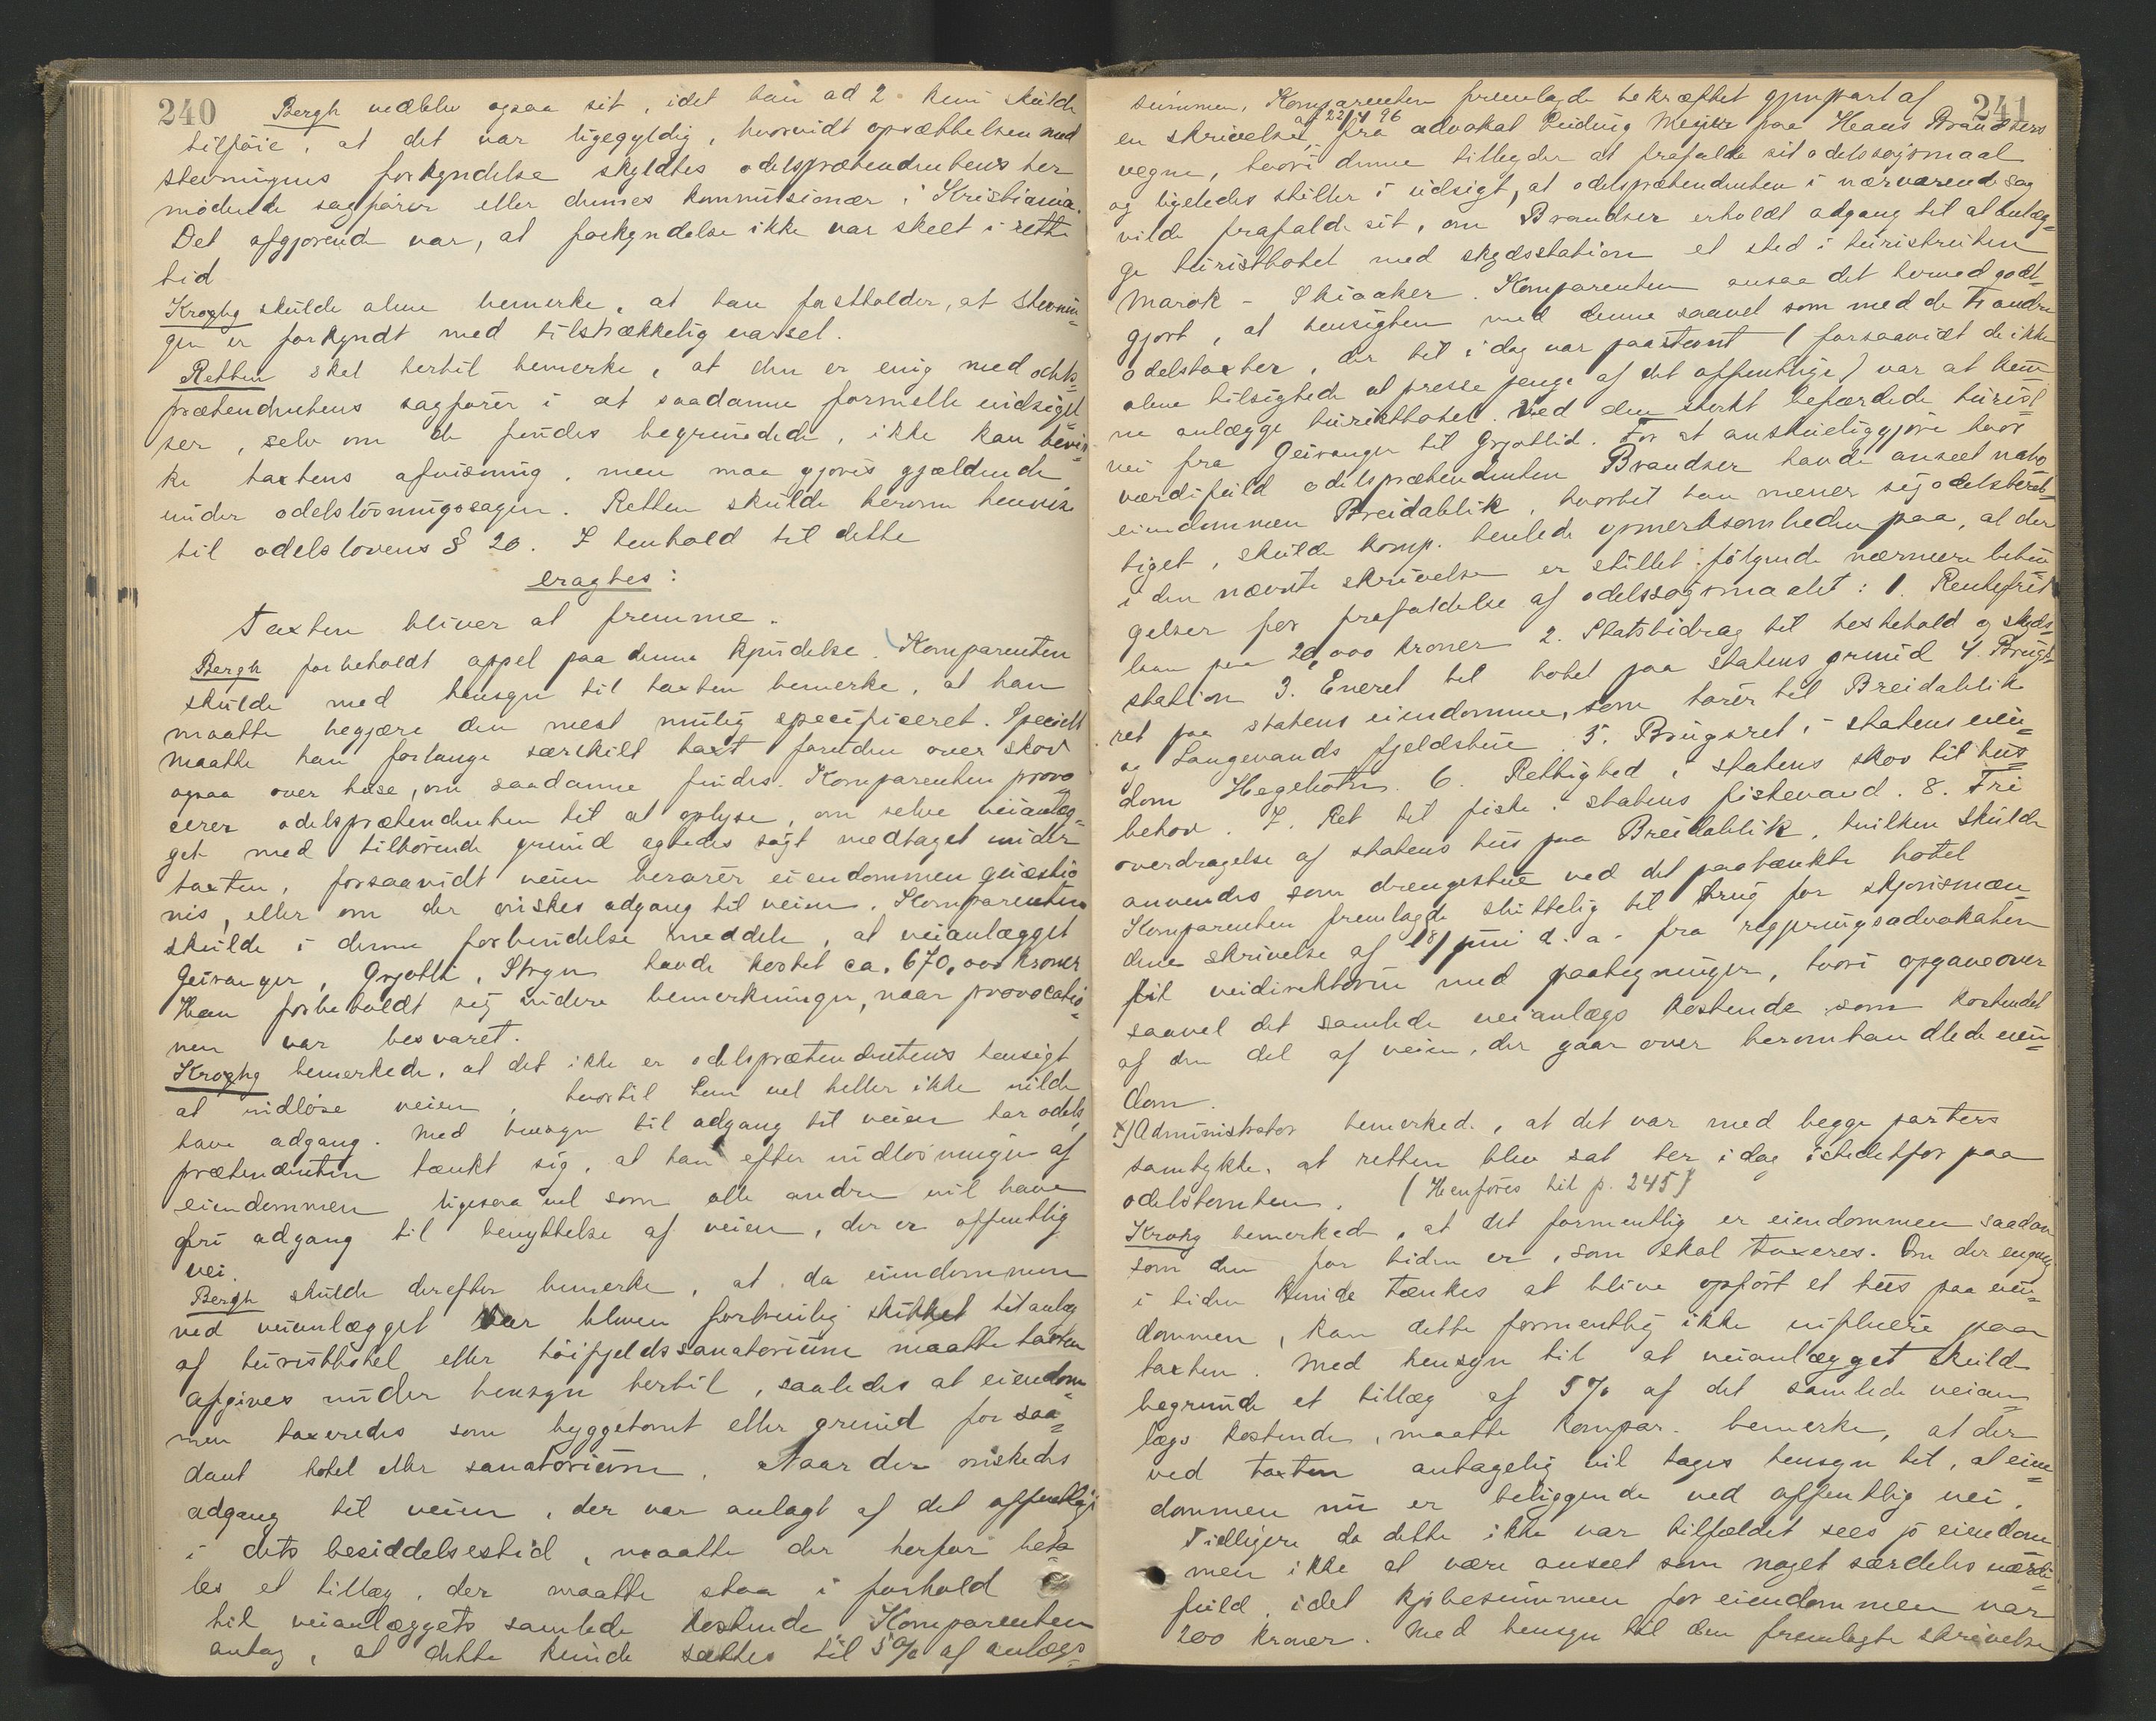 240
Bergh vedblev ogsaa sit, idet han ad 2 kun skulde
tilføie, at det var ligegyldig, hvorvidt opsættelsen med
stevningens forkyndelse skyldtes odelsprætendentens her
mødende sagfører eller dennes kommisionær i Kristiania.
Det afgjørende var, at forkyndelse ikke var skeet i rette
tid
Kroghg skulde alene bemerke, at han fastholder, at stevnin-
gen er forkyndt med tilstrækkelig varsel.
Retten skal hertil bemerke, at den er enig med odels-
prætendentens sagfører i at saadanne formelle indsigel
ser, selv om de findes begrundede, ikke kan bevir-
ke taxtens afvisning, men maa gjøres gjældende
under odelsløsningssagen. Retten skulde herom henvise
til odelslovens § 20. I henhold til dette
eragtes:
Taxten bliver at fremme.
Bergh forbeholdt appel paa denne kjendelse. Komparenten
skulde med hensyn til taxten bemerke, at han
maatte begjære den mest mulig specificeret. Specielt
maatte han forlange særskilt taxt foruden over skov
ogsaa over huse, om saadanne findes. Komparenten provo
cerer odelsprætendenten til at oplyse, om selve veianlæg-
get med tilhørende grund agtedes søgt medtaget under
taxten, forsaavidt veien berører eiendommen quæstio
nis, eller om der ønskes adgang til veien. Komparenten
skulde i denne forbindelse meddele, at veianlægget
Geiranger, Grjotli, Stryn havde kostet ca. 670,000 kroner
Han forbeholdt sig videre bemerkninger, naar provocatio-
nen var besvaret.
Kroghg bemerkede, at det ikke er odelsprætendentens hensigt
at indløse veien, hvortil han vel heller ikke vilde
have adgang. Med hensyn til adgang til veien har odels
prætendenten tænkt sig, at han efter indløsningen af
eiendommen ligesaa vel som alle andre vil have
fri adgang til benyttelse af veien, der er offentlig
vei.
Bergh skulde derefter bemerke, at da eiendommen
ved veianlægget var bleven fortrinlig skikket til anlæg
af turisthotel eller høifjeldssanatorium maatte taxten
afgives under hensyn hertil, saaledes at eiendom-
men taxeredes som byggetomt eller grund for saa-
dant hotel eller sanatorium. Naar der ønskedes
adgang til veien, der var anlagt af det offentlige
i dets besiddelsestid, maatte der herfor beta
les et tillæg, der maatte staa i forhold
til veianlæggets samlede kostende. Komparenten
antog, at dette kunde sættes til 5% af anlægs-
241
summen. Komparenten fremlagde bekræftet gjenpart af
af 22/4 96
en skrivelse fra advokat Ludvig Meyer paa Hans Brandsers
vegne, hvori denne tilbyder at frafalde sit odelssøgsmaal
og ligeledes stiller i udsigt, at odelsprætendenten i nærværende sag
vilde frafalde sit, om Brandser erholdt adgang til at anlæg-
ge turisthotel med skydsstation et sted i turistruten
Marok - Skiaaker. Komparenten ansaa det hermed godt-
gjort, at hensigten med denne saavel som med de to andre
odelstaxter, der til i dag var paastevnt (forsaavidt de ikke
alene tilsigtede at presse penge af det offentlige) var at kun
ne anlægge turisthotel ved den sterkt befærdede turist
vei fra Geiranger til Grjotlid. For at anskueliggjøre hvor
værdifuld odelsprætendenten Brandser havde anseet nabo
eiendommen Breidablik, hvortil han mener sig odelsberet-
tiget, skulde komp. henlede opmerksomheden paa, at der
i den nævnte skrivelse er stillet følgende nærmere betin
gelser for frafaldelse af odelssøgsmaalet: 1. Rentefrit
laan paa 20,000 kroner 2. Statsbidrag til vedhehold og skyds-
station 3. Eneret til hotel paa statens grund 4. Brugs
ret paa statens eiendomme, som hører til Breidablik
og Langevands fjeldstue 5. Brugsret i statens eien-
dom Hegebotn. 6. Rettighed i statens skov til hus-
behov. 7. Ret til fiske i statens fiskevand. 8. Fri
overdragelse af statens hus paa Breidablik, hvilken skulde
anvendes som drengestue ved det paatænkte hotel
Komparenten fremlagde sluttelig til brug for skjønsmæn
dene skrivelse af 18/ juni d. a. fra regjeringsadvokaten
til veidirektøren med paategninger, hvori opgave over
saavel det samlede veianlægs kostende som kostendet
af den del af veien, der gaar over heromhandlede eien-
dom.
x) Administrator bemerkede, at det var med begge parters
samtykke, at retten blev sat her i dag istedetfor paa
odelstomten. (Henføres til p. 245)
Krohg bemerkede, at det formentlig er eiendommen saadan
som den for tiden er, som skal taxeres. Om der engang
i tiden kunde tænkes at blive opført et hus paa eien-
dommen, kan dette formentlig ikke influere paa
taxten. Med hensyn til at veianlægget skulde
begrunde et tillæg af 5% af det samlede veian-
lægs kostende, maatte kompar. bemerke, at der
ved taxten antagelig vil tages hensyn til, at eien-
dommen nu er beliggende ved offentlig vei.
Tidligere da dette ikke var tilfældet sees jo eiendom
men ikke at være anseet som noget særdeles værdi-
fuld, idet kjøbesummen for eiendommen var
200 kroner. Med hensyn til den fremlagte skrivelse